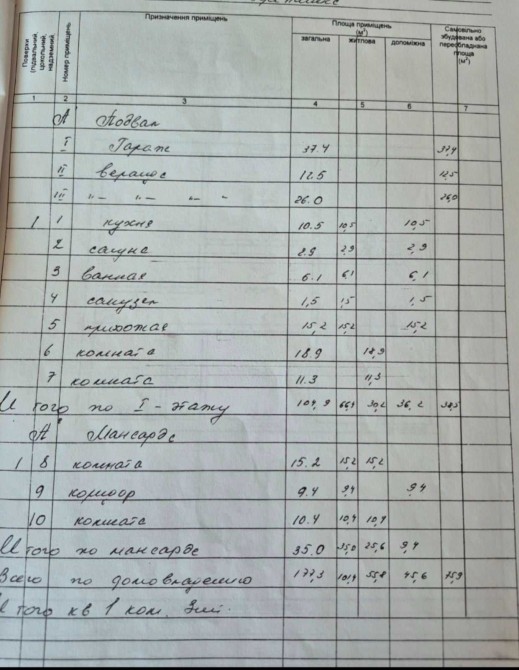 Поверхи (підвальний, цокольний, надземний) Номер приміщень Призначення приміщень Площа приміщень (м²) загальна житлова допоміжна Самовільно збудована або переобладнана площа (м²)
1 2 3 4 5 6 7
А' Подвал
I Гараж 37.4 37,4
II веранда 12.5 12,5
III "— "— "— 26.0 26,0
1 1 кухня 10.5 10,5 10,5
2 сауна 2.9 2,9 2,9
3 ванная 6.1 6,1 6,1
4 санузел 1,5 1,5 1,5
5 прихожая 15,2 15,2 15,2
6 комната 18,9 18,9
7 комната 11.3 11,3
Итого по I - этажу 30,2 36,2
А' Мансарда
1 8 комната 15.2 15,2 15,2
9 коридор 9.4 9,4 9,4
10 комната 10.4 10,4 10,4
Итого по мансарде 35.0 35,0 25,6 9,4
Всего по домовладению 177,3 101,4 55,8 45,6 75,9
Итого кв 1 ком.